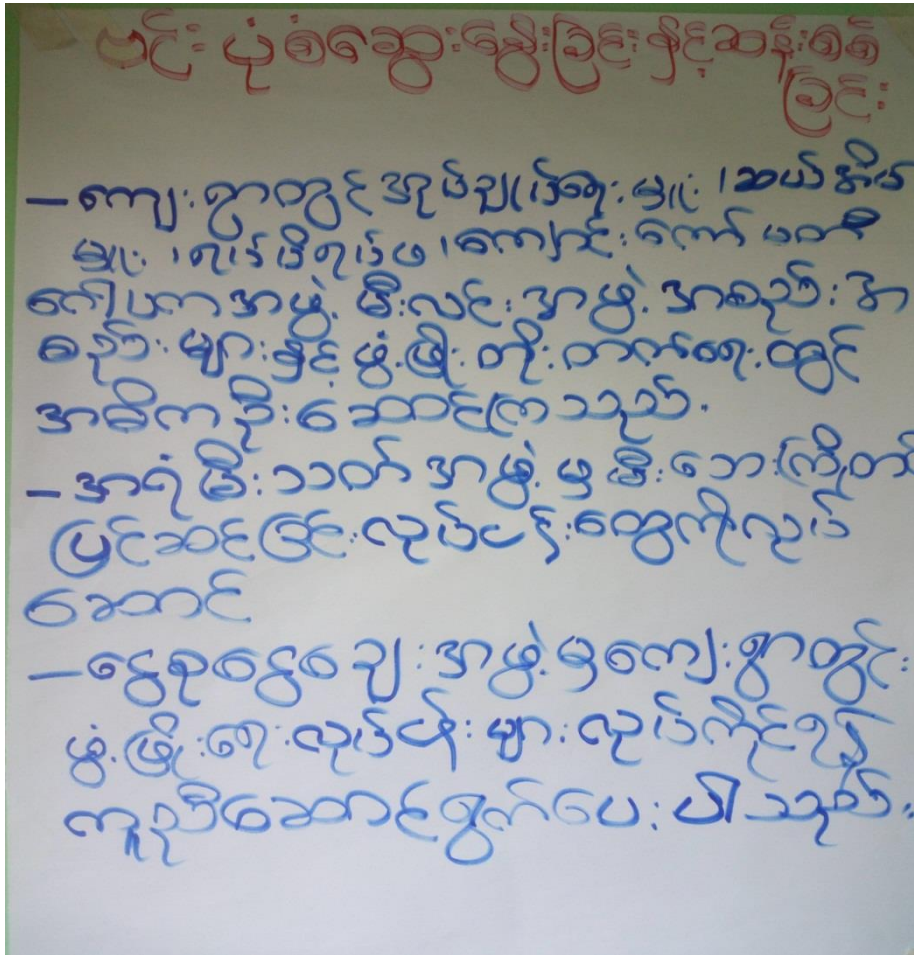 ဗင်းပုံစံဆွေးနွေးခြင်းနှင့်ဆန်းစစ်
ခြင်း
– ကျေးရွာတွင် အုပ်ချုပ်ရေးမှူး၊ ဆယ်အိမ်
မှူး၊ ရပ်မိရပ်ဖ၊ ကျောင်းကော်မတီ
ဂေါပကအဖွဲ့ မီးလင်းအဖွဲ့အစည်းအ
စည်းများနှင့် ဖွံ့ဖြိုးတိုးတက်ရေးတွင်
အဓိကဦးဆောင်ကြသည်.
– အရံမီးသတ်အဖွဲ့မှ မီးဘေးကြိုတင်
ပြင်ဆင်ခြင်းလုပ်ငန်းတွေကိုလုပ်
ဆောင်
– ငွေစုငွေချေးအဖွဲ့မှကျေးရွာတွင်း
ဖွံ့ဖြိုးရေးလုပ်ငန်းများလုပ်ကိုင်ရန်
ကူညီဆောင်ရွက်ပေးပါသည်.